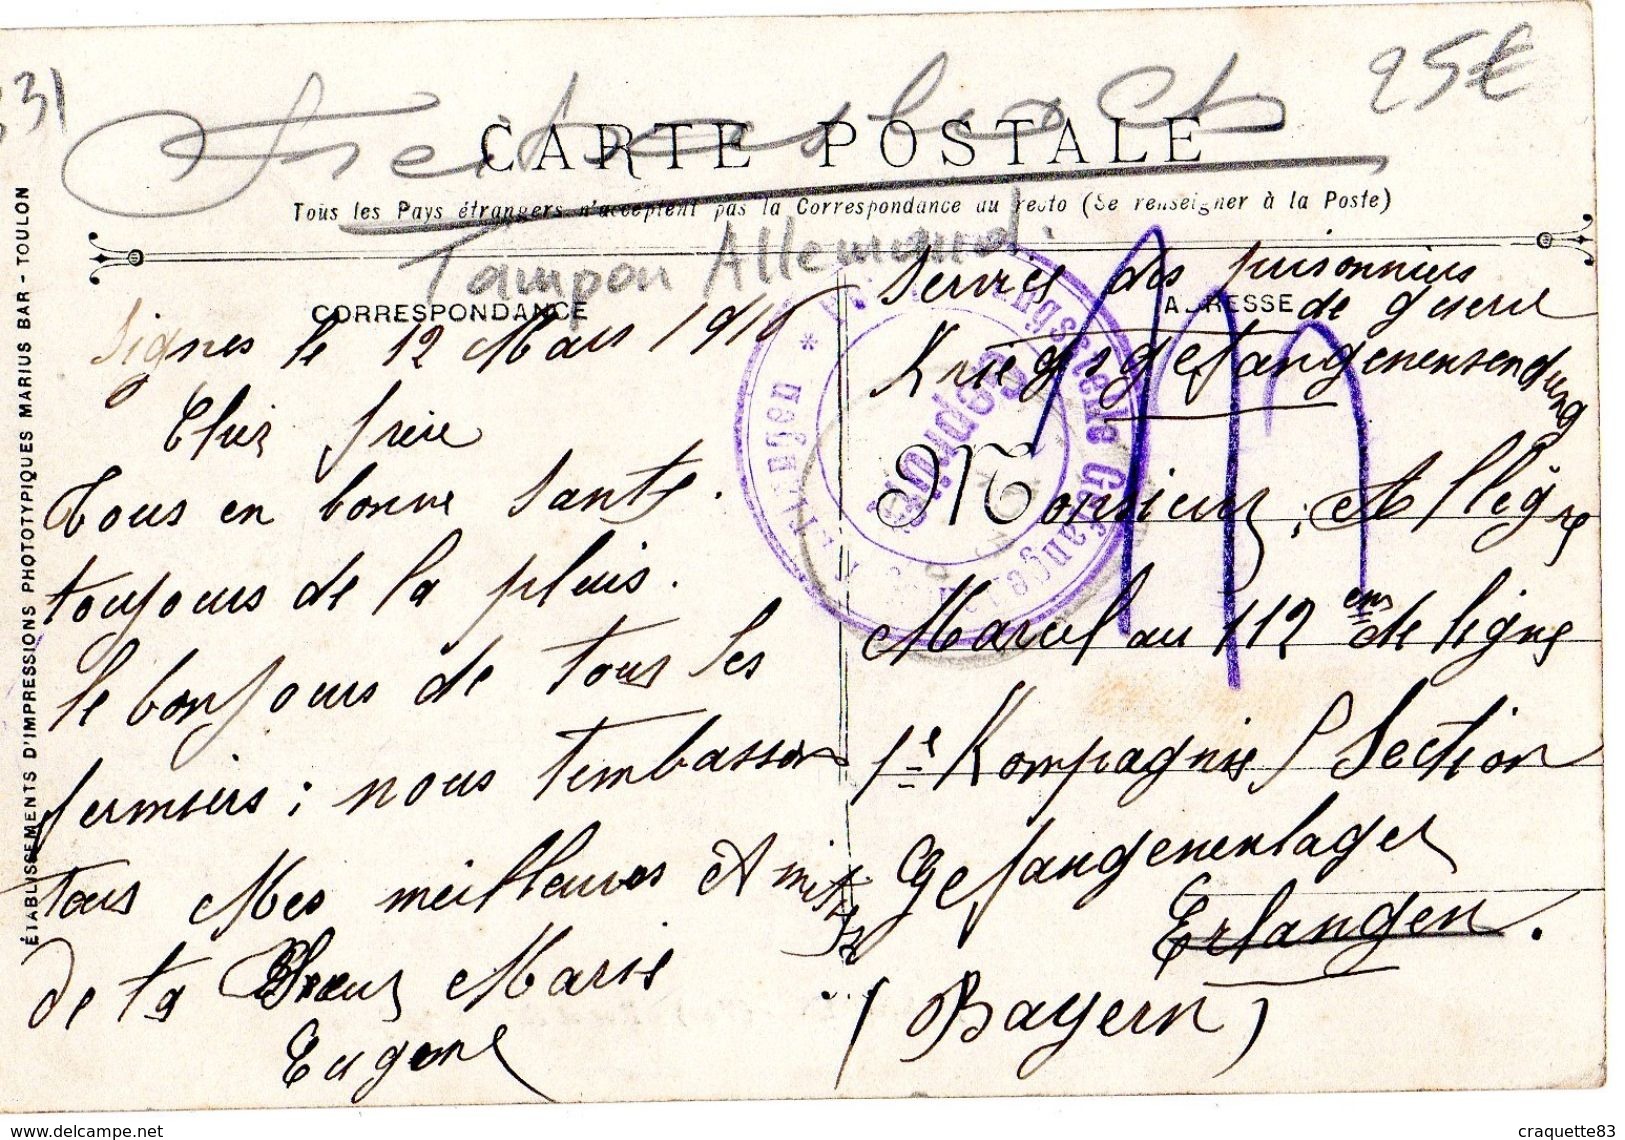 31
25€
CARTE POSTALE
Tous les Pays étrangers n'acceptent pas la Correspondance au recto (Se renseigner à la Poste)
Tampon Allemand.
CORRESPONDANCE
ADRESSE
Signes le 12 Mars 1916
Cher frère
Tous en bonne Santé.
toujours de la pluis.
le bonjours de tous les
fermiers ; nous tembasson
tous Mes meilleures Amitiés
de ta Sœur Marie
Eugene
Service des prisonniers
de guerre
Kriegsgefangenensendung
Monsieur Allègre
Marcel au 112 em de ligne
1e Kompagnie Section
Gefangenenlager
Erlangen.
(Bayern)
Geprüft
Erlangen
ÉTABLISSEMENTS D'IMPRESSIONS PHOTOTYPIQUES MARIUS BAR - TOULON
www.delcampe.net
craquette83